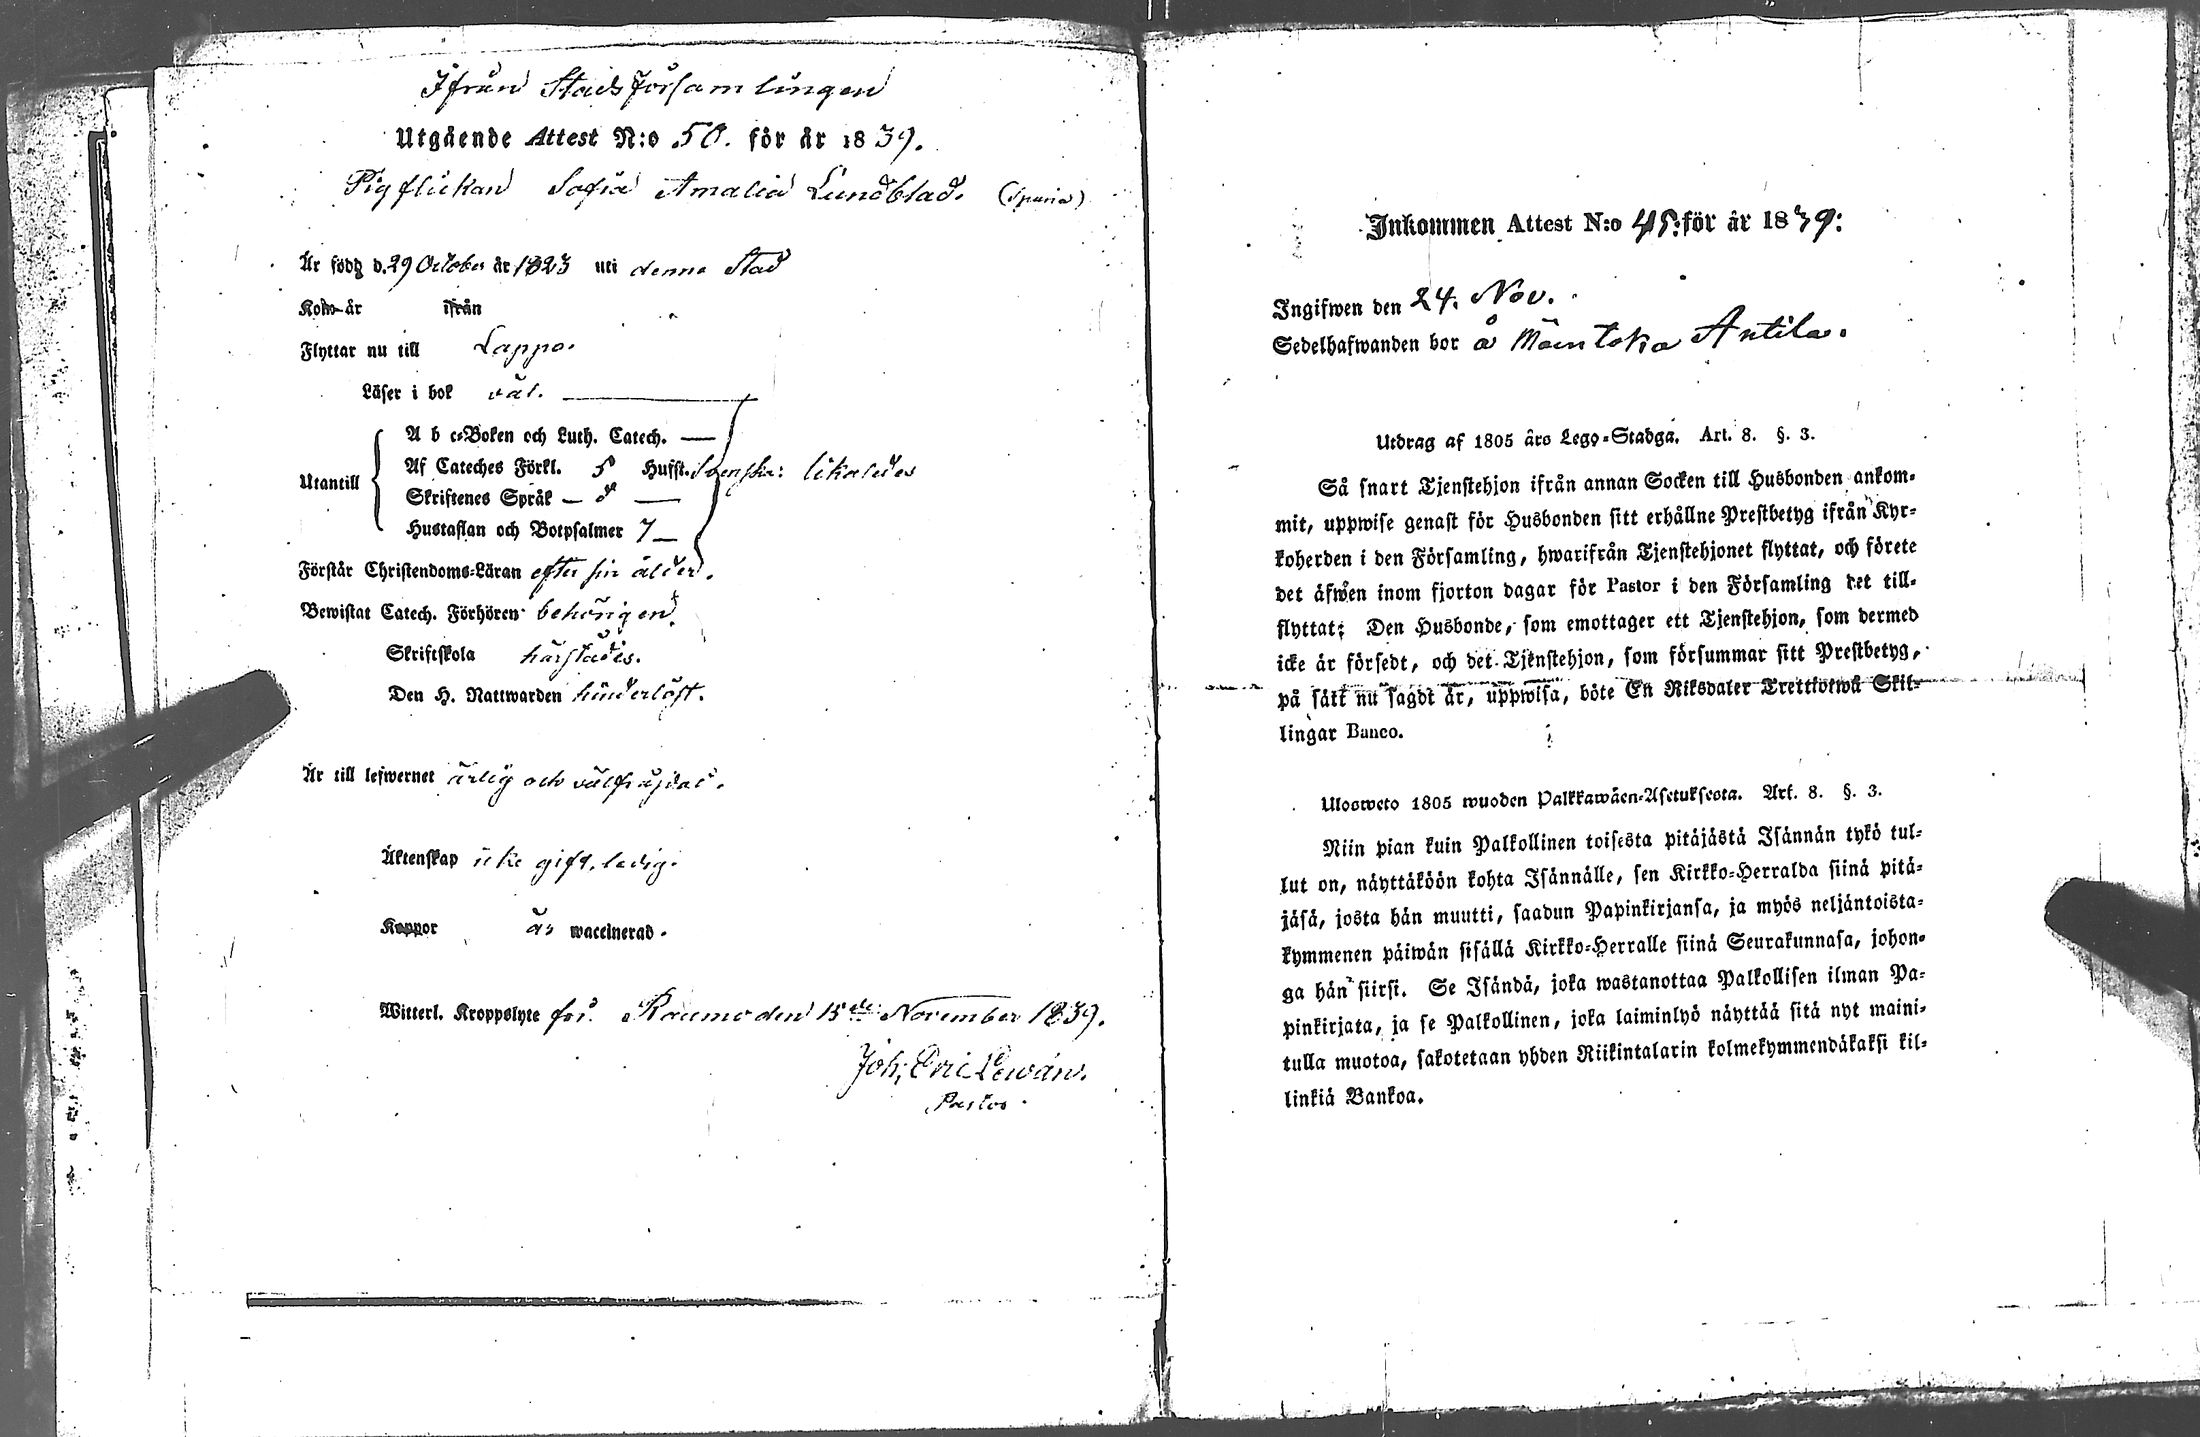 Ifrån Stadsförsamlingen
Utgående Attest N:o 50. för år 1839.
Pigflickan Sofia Amalia Lundblad. (Spuria)
Är född d. 29 October år 1823 uti denna Stad
Kom år ifrån
Flyttar nu till Lappo.
Läser i bok väl.
A b c-Boken och Luth. Catech. —
Af Cateches Förkl. 5 Hufst. Svenska: likaledes
Utantill
Skriftenes Språk —
Hustaflan och Botpsalmer 7 —
Förstår Christendoms-Läran efter sin ålder.
Bewistat Catech. Förhören behörigen.
Skriftskola härstädes.
Den H. Nattwarden hinderlöst.
Är till lefwernet ärlig och välfrejdad.
Äktenskap icke gift, ledig.
Koppor är waccinerad.
Witterl. Kroppslyte fri. Raumo den 15de November 1839.
Joh. Eric Lewán.
Pastor.
Inkommen Attest N:o 45: för år 1839:
Ingifwen den 24. Nov.
Sedelhafwanden bor å Mäntska Antila.
Utdrag af 1805 års Lego-Stadga. Art. 8. §. 3.
Så snart Tjenstehjon ifrån annan Socken till Husbonden ankom-
mit, uppwise genast för Husbonden sitt erhållne Prestbetyg ifrån Kyr-
koherden i den Församling, hwarifrån Tjenstehjonet flyttat, och förete
det äfwen inom fjorton dagar för Pastor i den Församling det till-
flyttat; Den Husbonde, som emottager ett Tjenstehjon, som dermed
icke är försedt, och det Tjenstehjon, som försummar sitt Prestbetyg,
på sätt nu sagdt är, uppwisa, böte En Riksdaler Trettiotwå Skil-
lingar Banco.
Ulosweto 1805 wuoden Palkkawäen-Asetuksesta. Art. 8. §. 3.
Niin pian kuin Palkollinen toisesta pitäjästä Isännän tykö tul-
lut on, näyttäköön kohta Isännälle, sen Kirkko-Herralda siinä pitä-
jäsä, josta hän muutti, saadun Papinkirjansa, ja myös neljäntoista-
kymmenen päiwän sisällä Kirkko-Herralle siinä Seurakunnasa, johon-
ga hän siirsi. Se Isändä, joka wastanottaa Palkollisen ilman Pa-
pinkirjata, ja se Palkollinen, joka laiminlyö näyttää sitä nyt maini-
tulla muotoa, sakotetaan yhden Riikintalarin kolmekymmendäkaksi kil-
linkiä Bankoa.